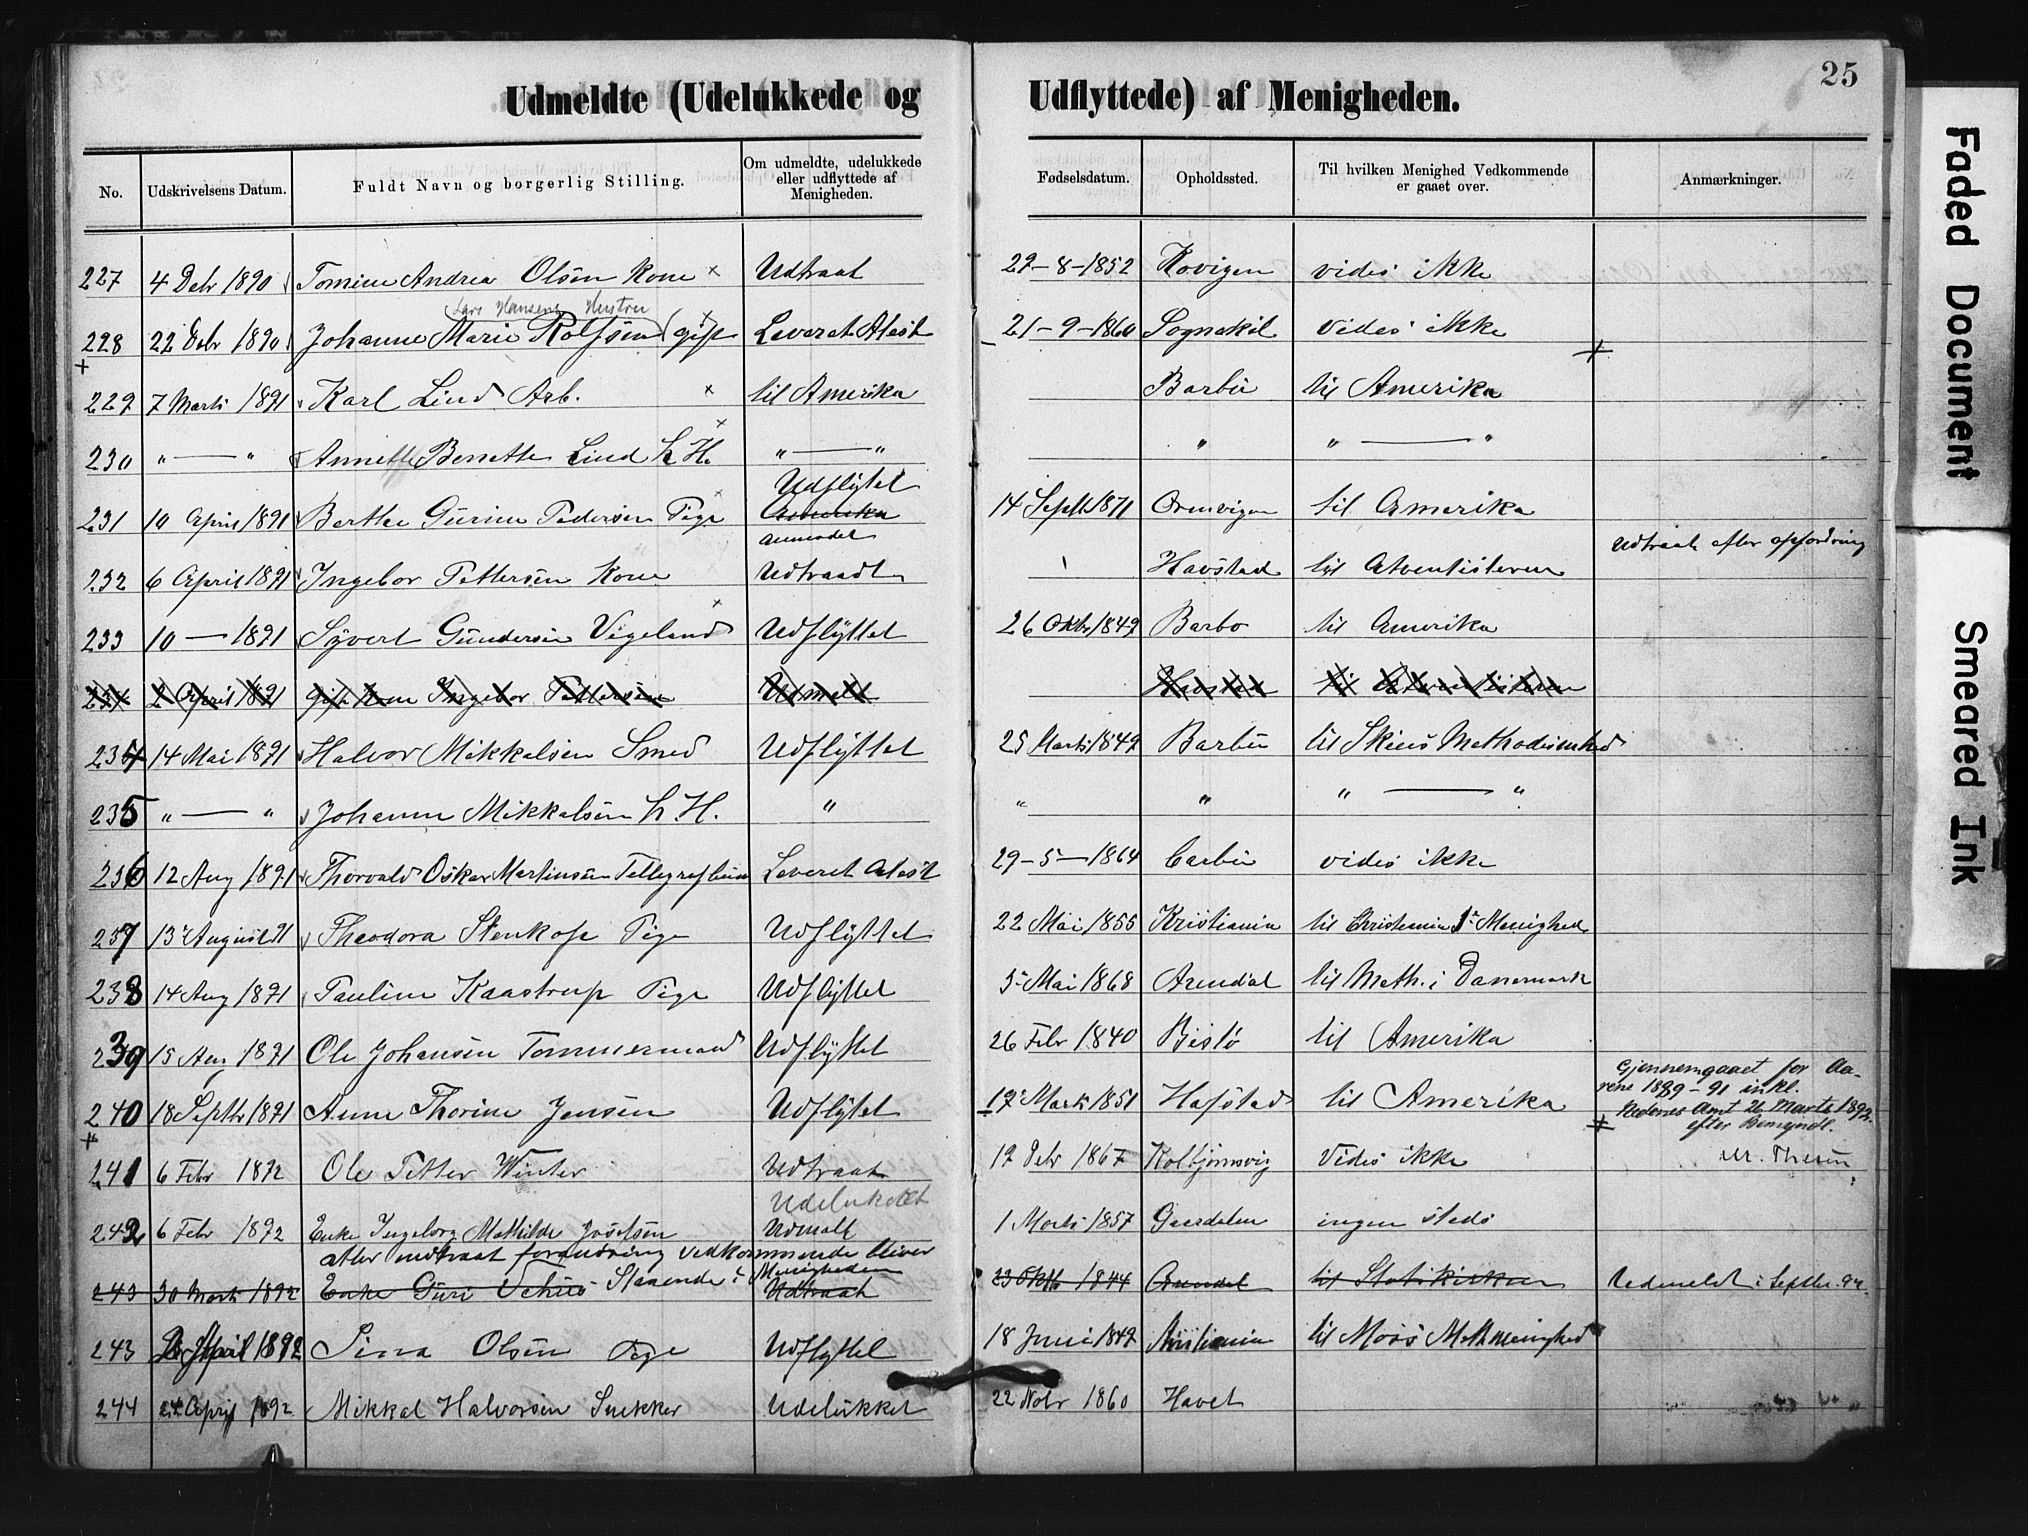 25
Udmeldte (Udelukkede og Udflyttede) af Menigheden.
No. Udskrivelsens Datum. Fuldt Navn og borgerlig Stilling. Om udmeldte, udelukkede eller udflyttede af Menigheden. Fødselsdatum. Opholdssted. Til hvilken Menighed Vedkommende er gaaet over. Anmærkninger.
227 4 Debr 1890 Tomine Andrea Olsen Kone x Udtraat 29-8-1852 Kovigen vides ikke
Lars Hansens Hustru
228 22 Debr 1890 Johanne Marie Rolfsen (gift x Leveret Atest 21-9-1860 Sognekil vides ikke
229 7 Marts 1891 Karl Lind Arb. x til Amerika Barbu til Amerika
230 " — " Annette Bernette Lind h H. x " — " " " — "
Udflytet
231 10 April 1891 Berthe Gurine Pedersen Pige x Amerika 14 Septb 1871 Ormvigen til Amerika
anmodet
Udtraat efter opfordring
232 6 April 1891 Ingebor Pettersen Kone Udtraadt Havstad til Atventisterne
233 10 — 1891 Syvert Gundersen Vigeland x Udflyttet 26 Oktb 1849 Barbo til Amerika
234 2 April 1891 gift Kone Ingebor Pettersen Udmelt Havstad til Atventisterne
234 14 Mai 1891 Halvor Mikkalsen Smed Udflyttet 25 Marts 1849 Barbu til Skiens Methodismhed
235 " — " Johanne Mikkalsen h. H. " " " " — "
236 12 Aug 1891 Thorvald Oskar Martinsen Leveret Atest 29-5-1864 Barbu vides ikke
237 13 August 91 Theodora Stenkop Pige Udflyttet 22 Mai 1855 Kristiania til Christiania 1ste Menighed
238 14 Aug 1891 Pauline Kaastrup Pige Udflyttet 5 Mai 1868 Arendal til Meth. i Danemark
239 15 Aug 1891 Ole Johansen Tømmermand Udflyttet 26 Febr 1840 Bislø til Amerika
Gjennemgaaet for Aa-
rene 1889-91 inkl.
240 18 Septbr 1891 Anne Thorine Jensen Udflytet 19 Marts 1851 Hafstad til Amerika Nedenes Amt 26 Marts 1892.
efter Bemyndl.
241 6 Febr 1892 Ole Petter Winter Udtraat 19 Debr 1867 Kolbjørnsvig Vides ikke M. Thesen
Udelukket
242 6 Febr 1892 Enke Ingeborg Mathilde Josefsen Udmelt 1 Marts 1857 Gaardalen ingen steds
atter indtraat forandring vedkommende bliver
243 30 Marts 1892 Enke Guri Staaende i Menigheden Udtraat 23 Oktb 1844 Arendal til Statskirken Uedmeldt i Septbr. 92.
243 April 1892 Sina Olsen Pige Udflyttet 18 Juni 1849 Kristiania til Moss Meth menighed
244 24 April 1892 Mikkal Halvorsen Snekker Udelukket 22 Nobr 1860 Havet
Faded Document
Smeared Ink